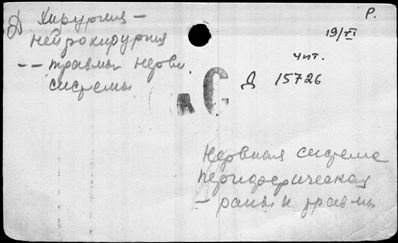 Р.
Д Хирургия –
нейрохирургия
-- травмы нервн
системы
19/VI
чит.
Д 15726
Нервная система
периферическая
– раны и травмы